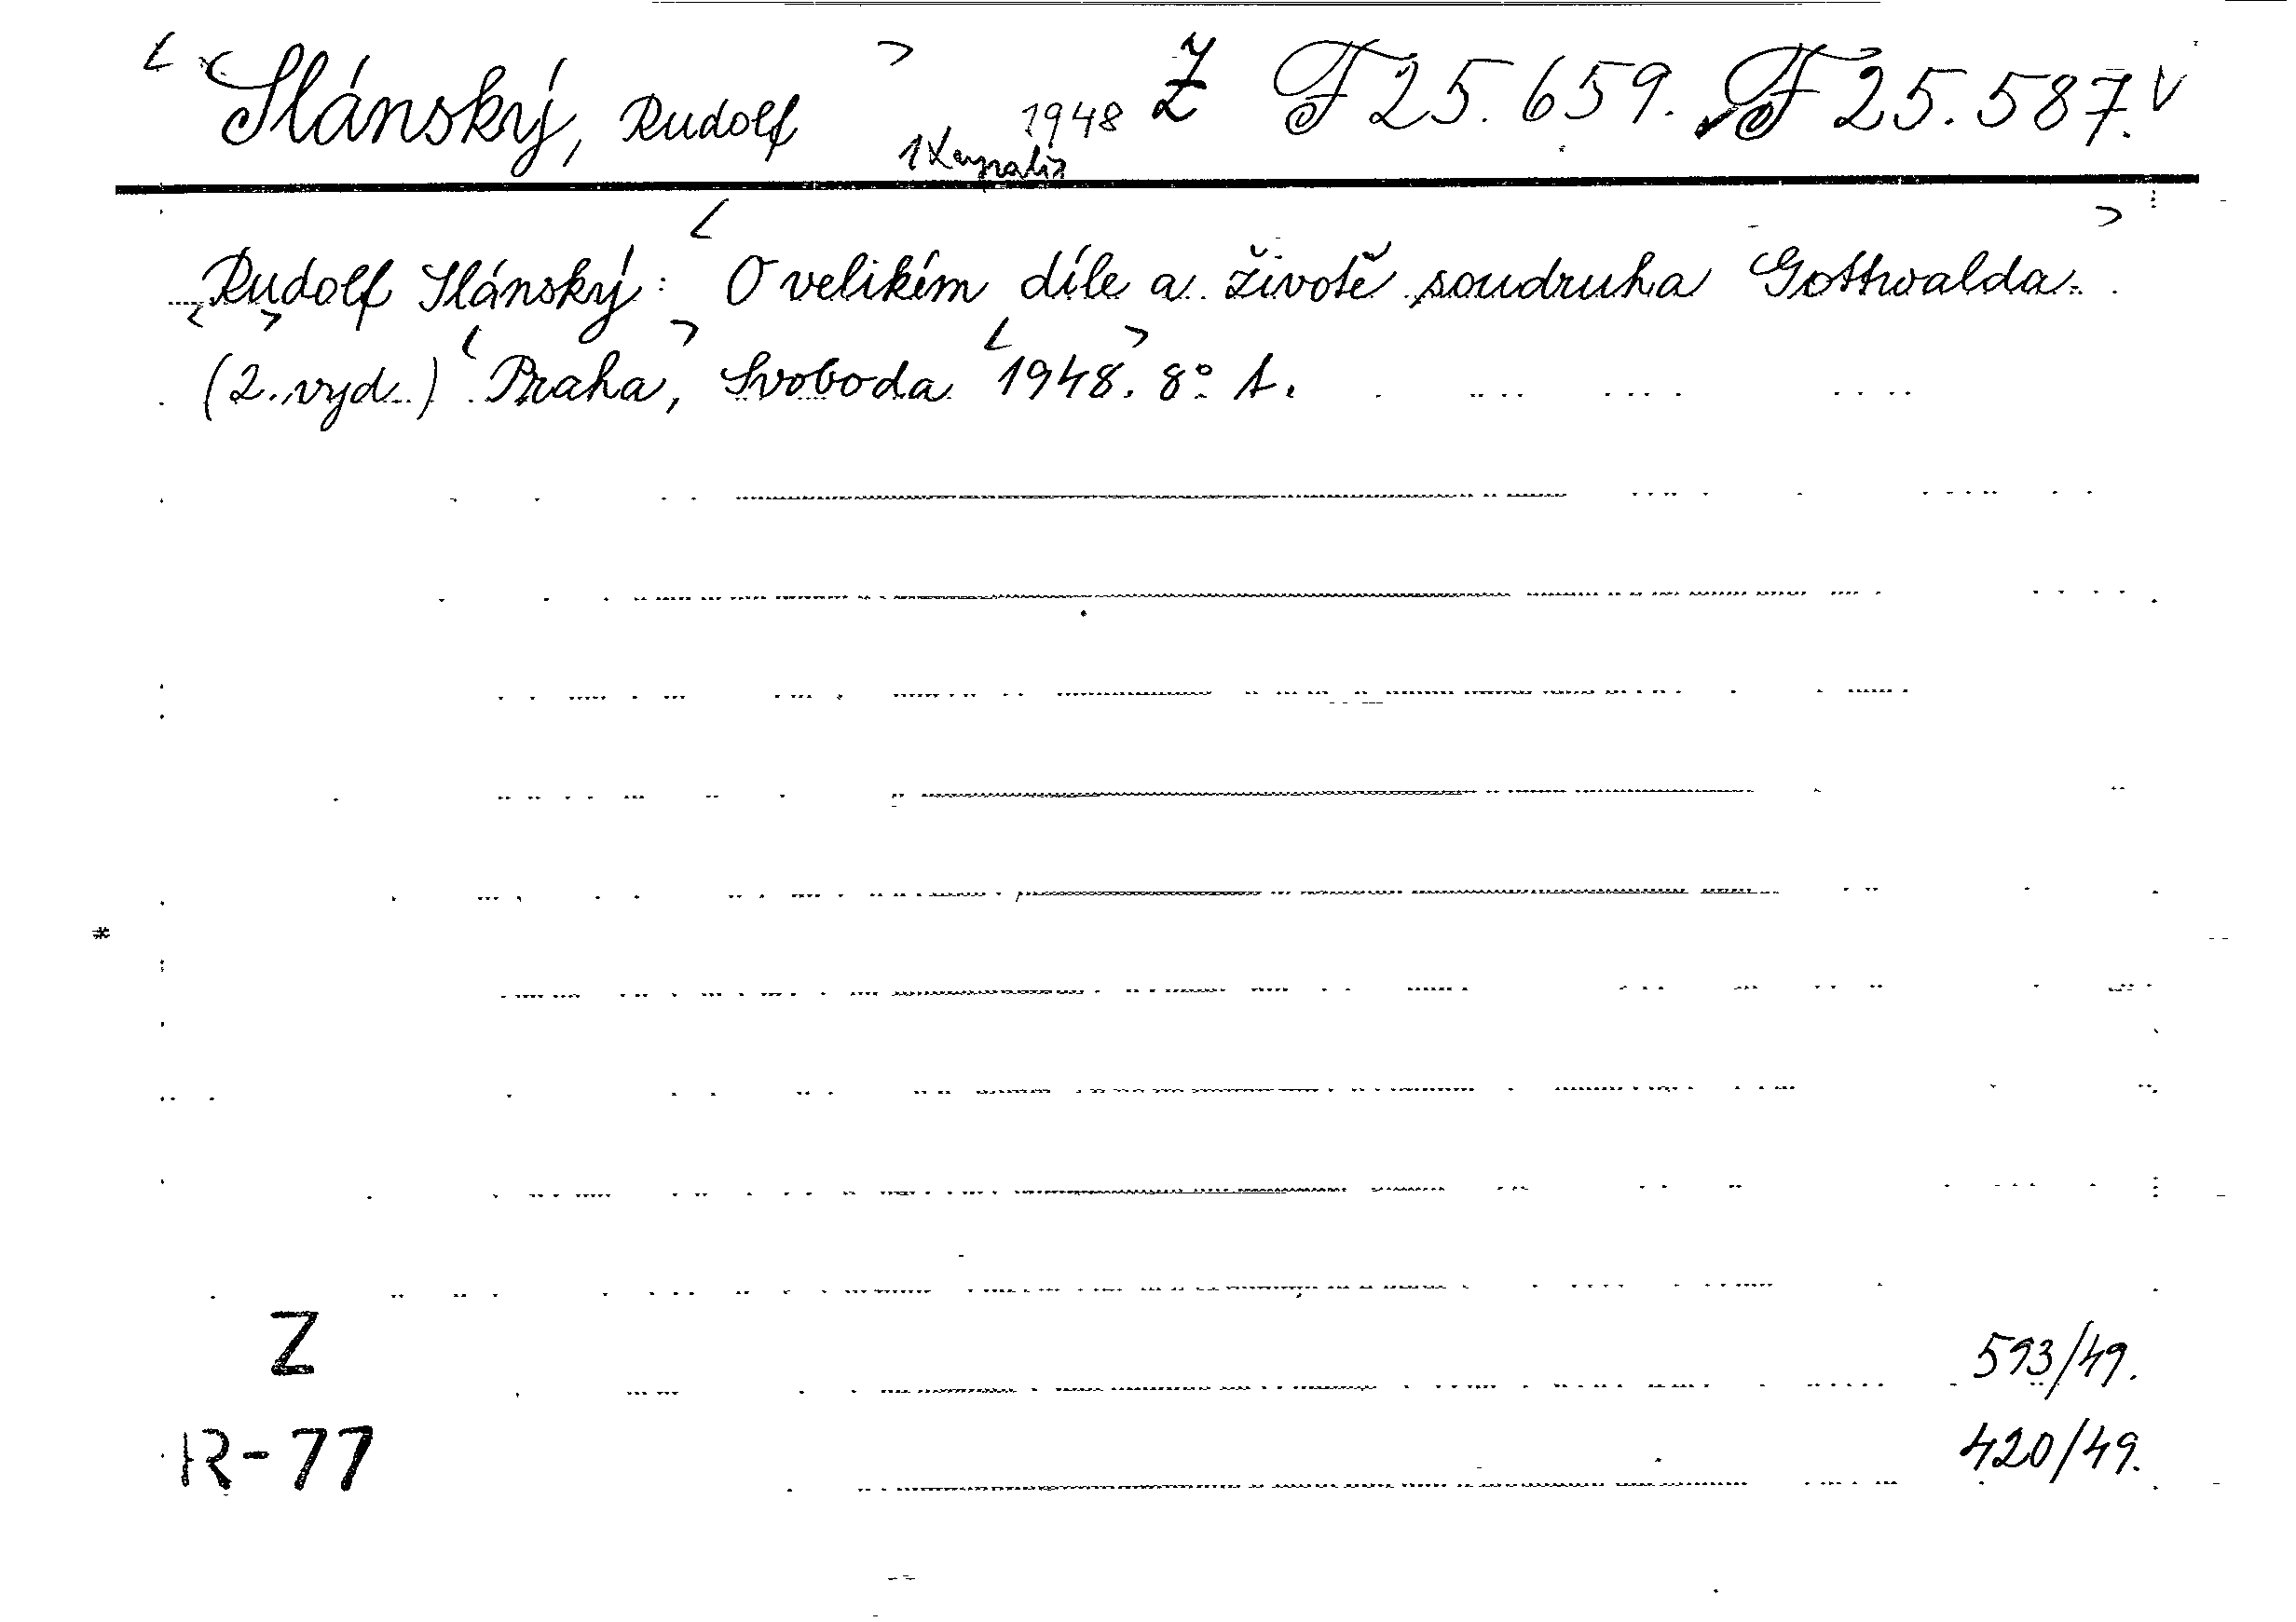 < Slánský, Rudolf > 1948 Z F 25.659. F 25.587. V
Rudolf Slánský: < O velikém díle a životě soudruha Gottwalda. >
(2. vyd.) < Praha, > Svoboda < 1948. > 8° A.
*
Z
593/49.
R-77
420/49.